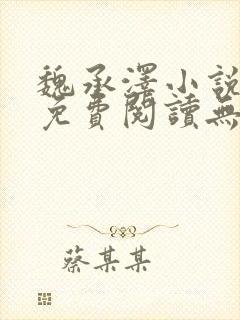 魏承澤小說
免費閱讀無
蔡某某